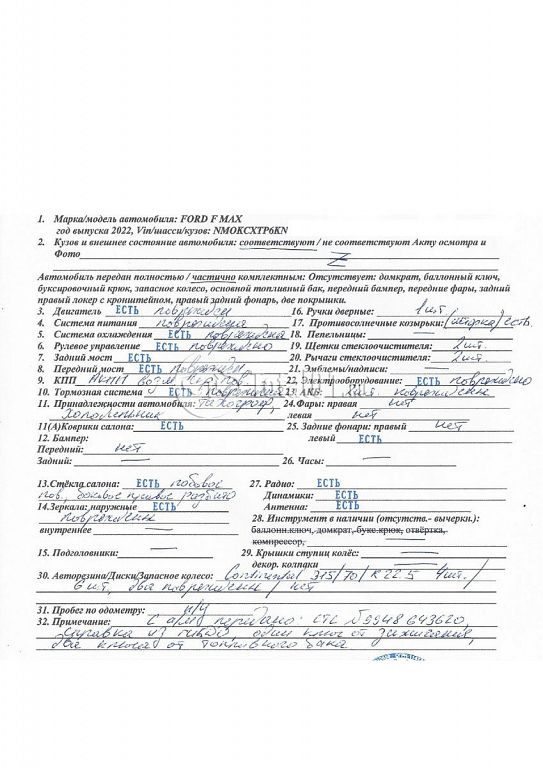 1. Марка/модель автомобиля: FORD F MAX
год выпуска 2022, Vin/шасси/кузов: NMOKCXTP6KN
2. Кузов и внешнее состояние автомобиля: соответствуют / не соответствуют Акту осмотра и
Фото Z
Автомобиль передан полностью / частично комплектным: Отсутствует: домкрат, баллонный ключ,
буксировочный крюк, запасное колесо, основной топливный бак, передний бампер, передние фары, задний
правый локер с кронштейном, правый задний фонарь, две покрышки.
3. Двигатель ЕСТЬ повреждён 16. Ручки дверные: 1шт.
4. Система питания повреждена 17. Противосолнечные козырьки: (шторка) есть
5. Система охлаждения ЕСТЬ повреждена 18. Пепельницы: —
6. Рулевое управление ЕСТЬ повреждено 19. Щетки стеклоочистителя: 2шт.
7. Задний мост ЕСТЬ 20. Рычаги стеклоочистителя: 2шт.
8. Передний мост ЕСТЬ повреждён 21. Эмблемы/надписи: —
9. КПП АКПП 22. Электрооборудование: ЕСТЬ повреждено
10. Тормозная система ЕСТЬ повреждена 23. АКБ: повреждены
11. Принадлежности автомобиля: Тахограф, 24. Фары: правая нет
Холодильник левая нет
11(А)Коврики салона: ЕСТЬ 25. Задние фонари: правый нет
12. Бампер: левый ЕСТЬ
Передний: нет
Задний: — 26. Часы: —
13. Стёкла салона: ЕСТЬ лобовое 27. Радио: ЕСТЬ
пов, боковое правое разбито Динамики: ЕСТЬ
14. Зеркала: наружные ЕСТЬ Антенна: ЕСТЬ
повреждены 28. Инструмент в наличии (отсутств.- вычеркн.):
внутреннее — баллонн.ключ, домкрат, букс.крюк, отвёртка,
компрессор,
15. Подголовники: — 29. Крышки ступиц колёс: —
декор. колпаки
30. Авторезина/Диски/Запасное колесо: Continental 315/70/R22.5 4шт./
6шт, два повреждены / нет
31. Пробег по одометру: н/у
32. Примечание: С а/м передано: СТС №9948 643620,
справка из ГИБДД, один ключ от зажигания,
два ключа от топливного бака